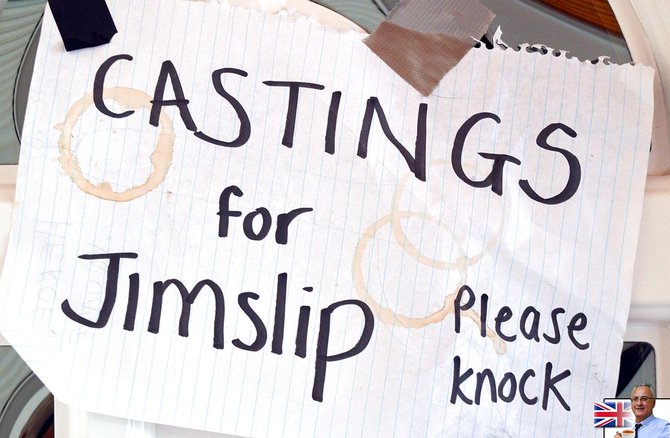 CASTINGS
for
Jimslip
Please
knock